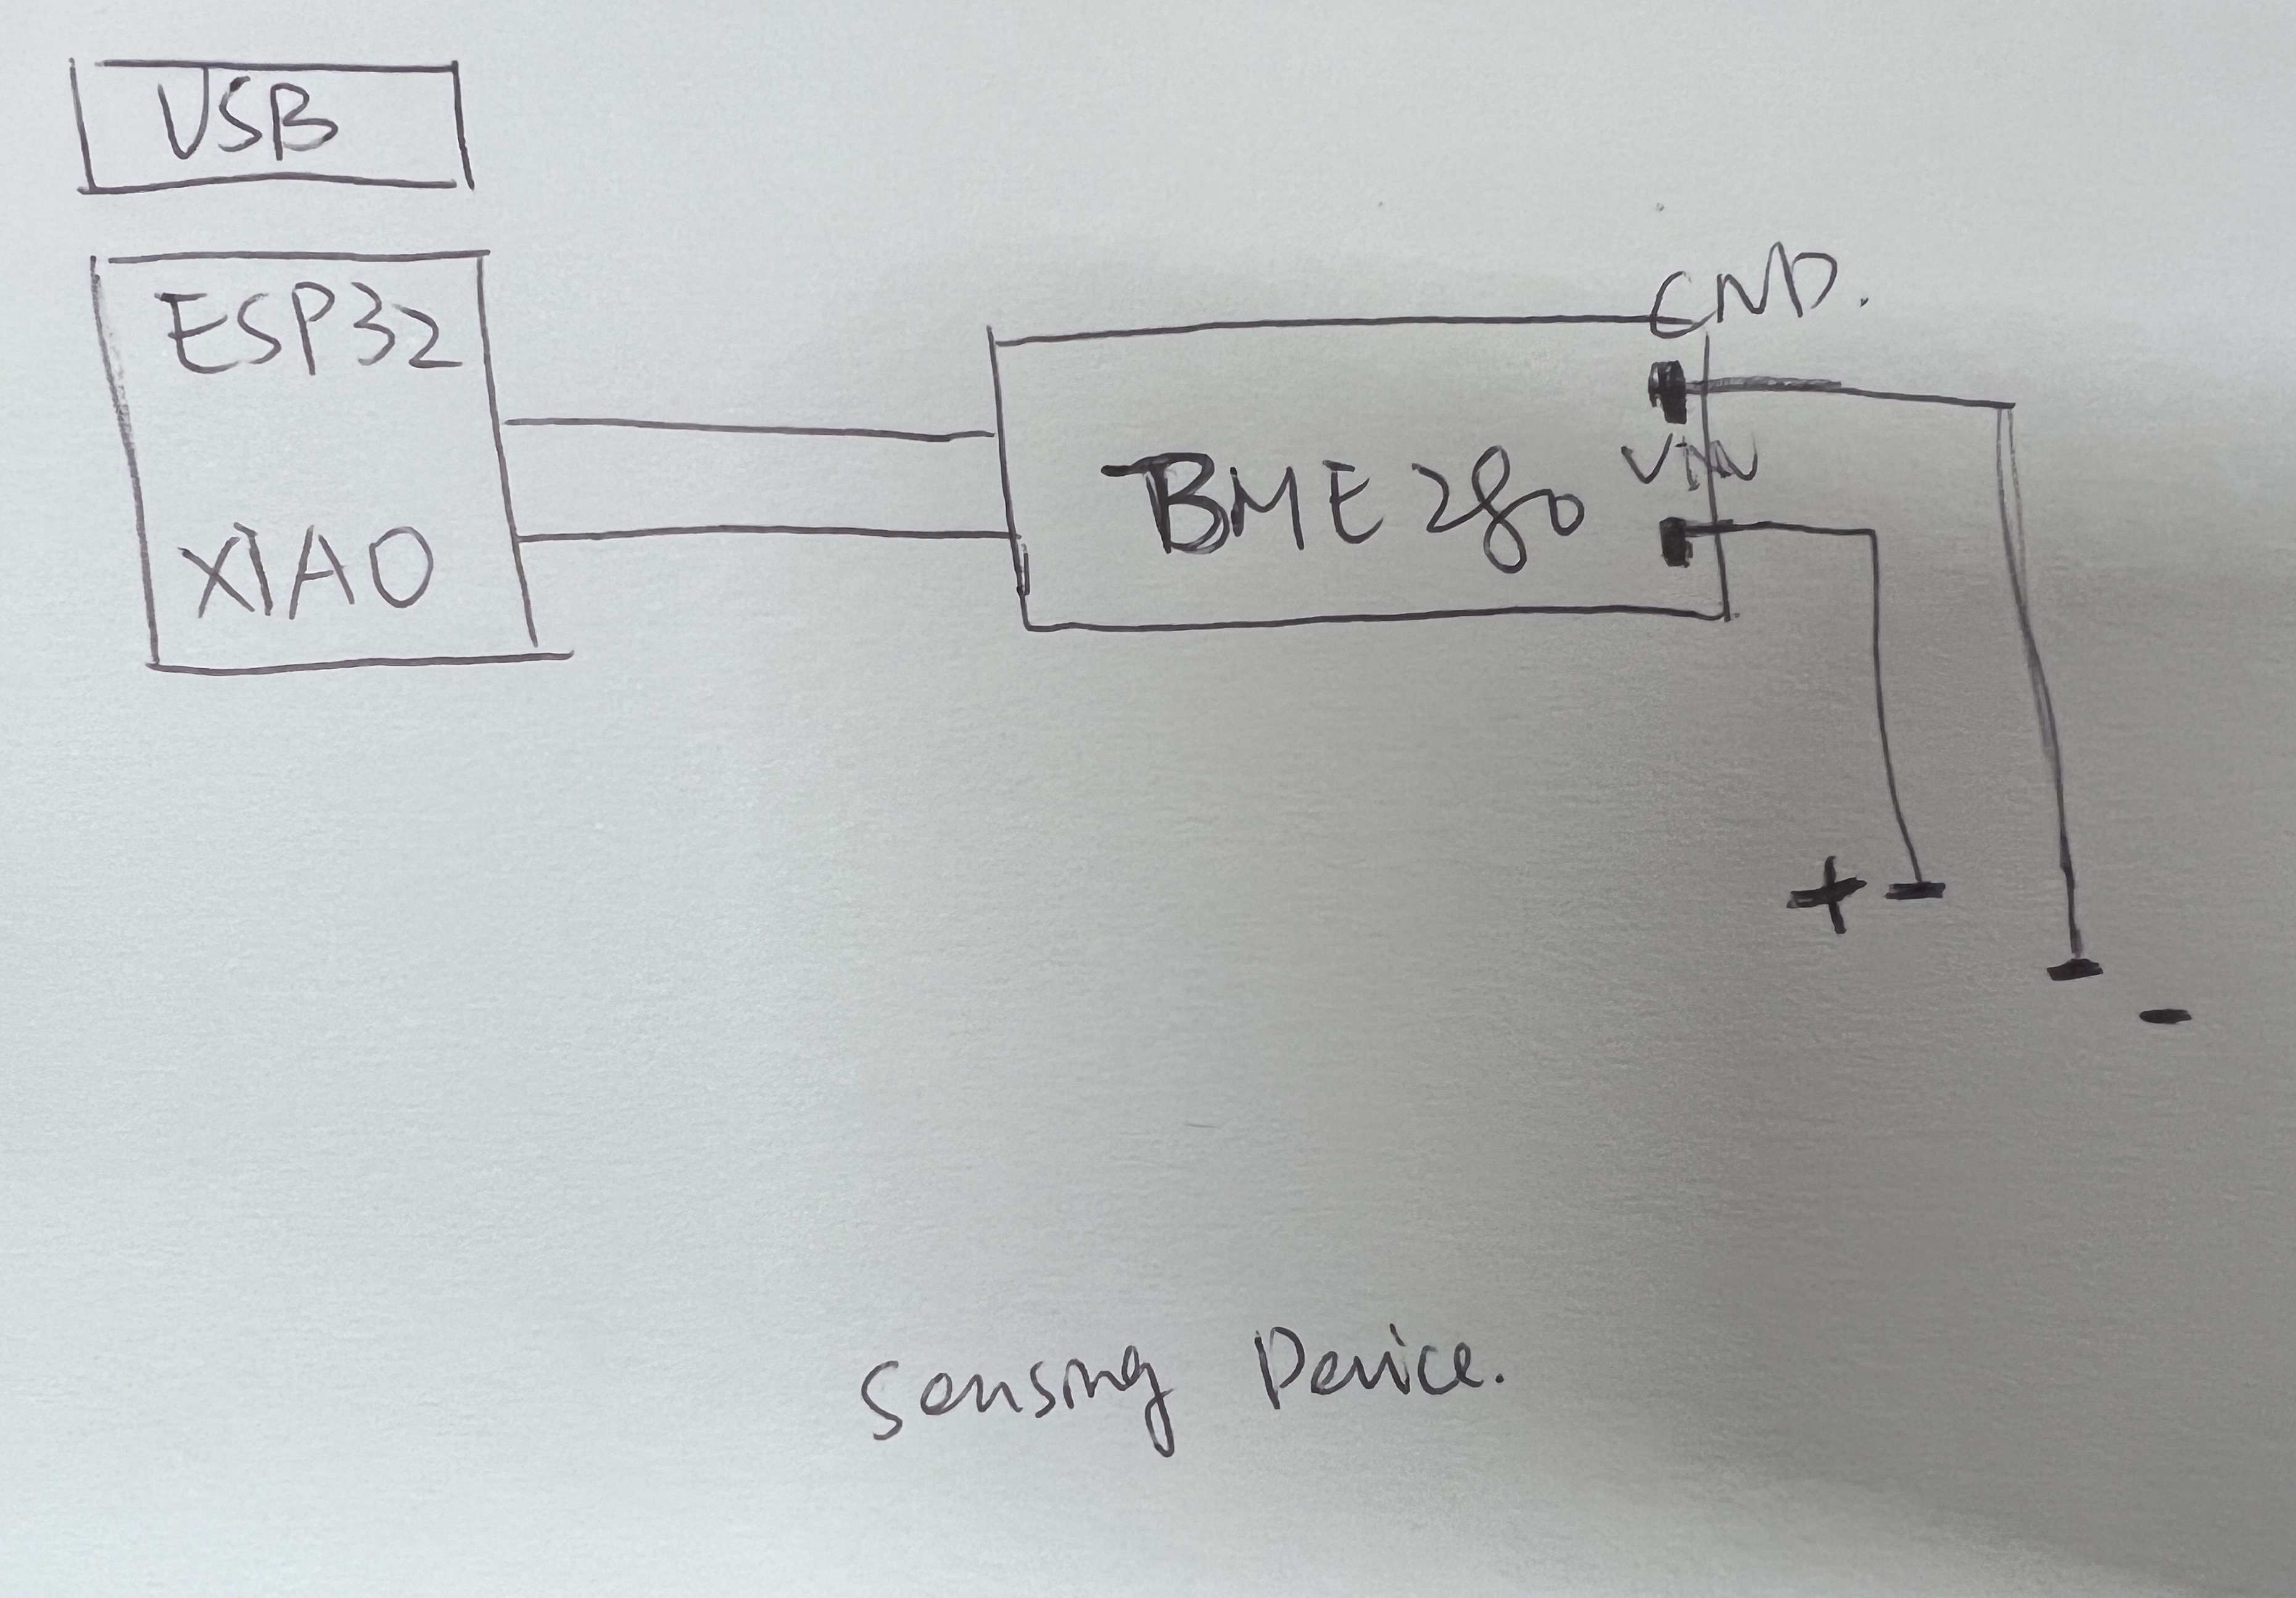 USB
ESP32
XIAO
GND.
BME280
VIN
+
-
Sensing Device.